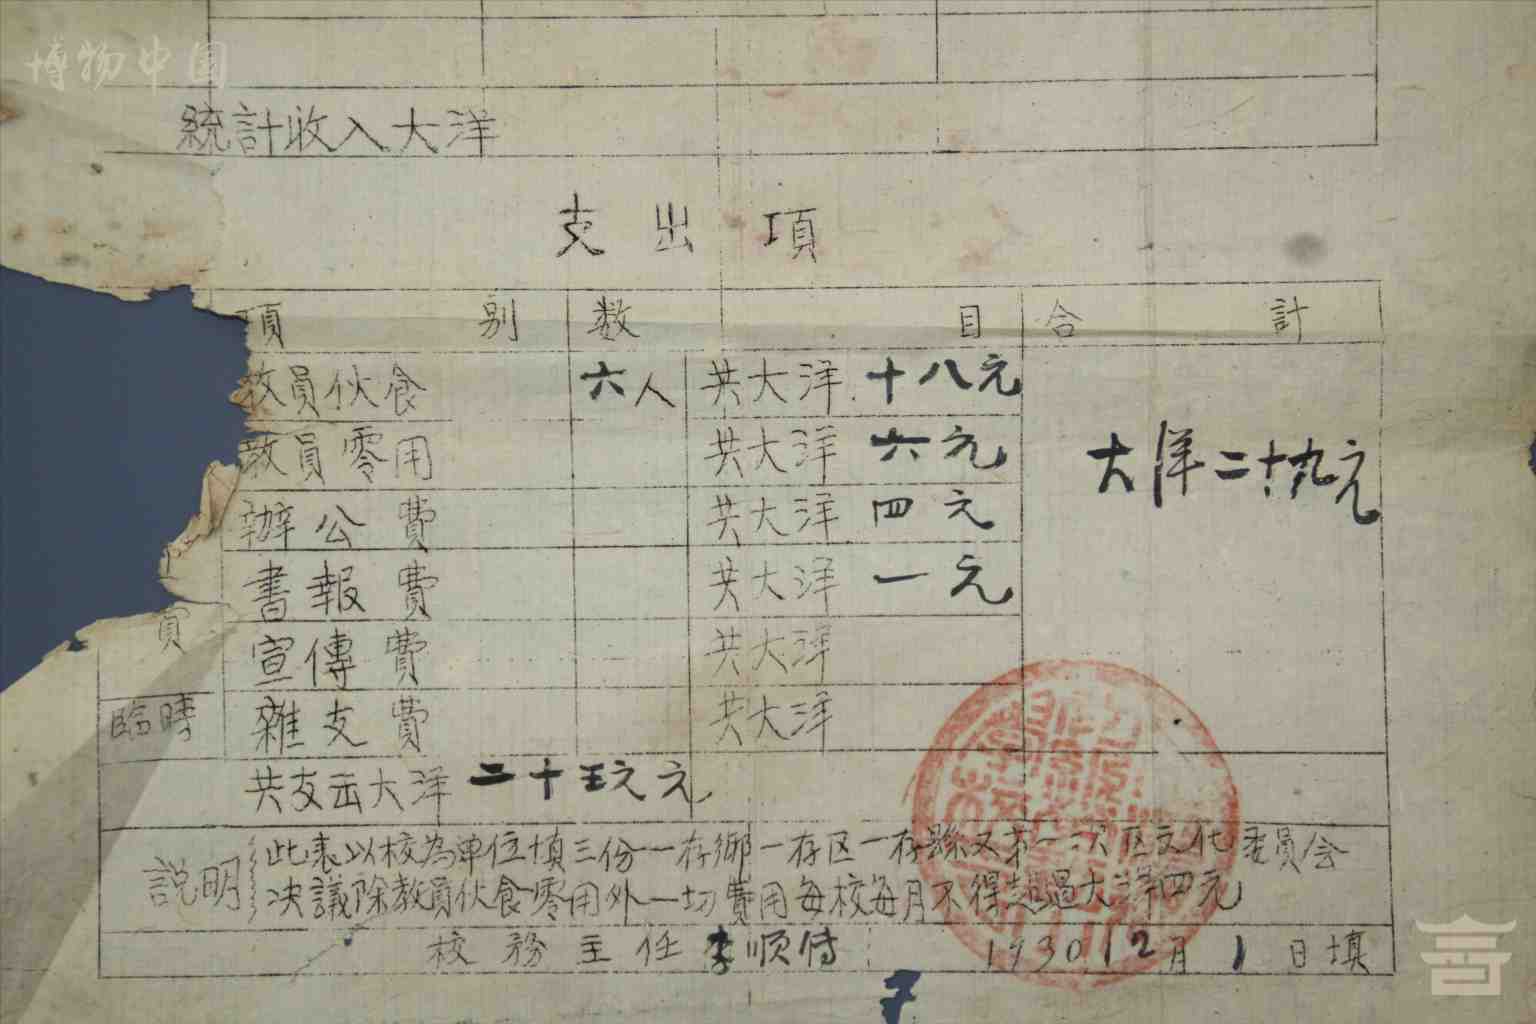 博物中国
統計收入大洋
支出項
項別 数目 合計
教員伙食 六人 共大洋 十八元
教員零用 共大洋 六元
辦公費 共大洋 四元 大洋二十九元
書報費 共大洋 一元
宣傳費 共大洋
臨時 雜支費 共大洋
共支出大洋 二十
説明 此表以校為单位填三份一存鄉一存区一存縣又第一次区文化委員会
决議除教員伙食零用外一切費用每校每月不得超過大洋四元
校務主任 李順 1930 12月1日填